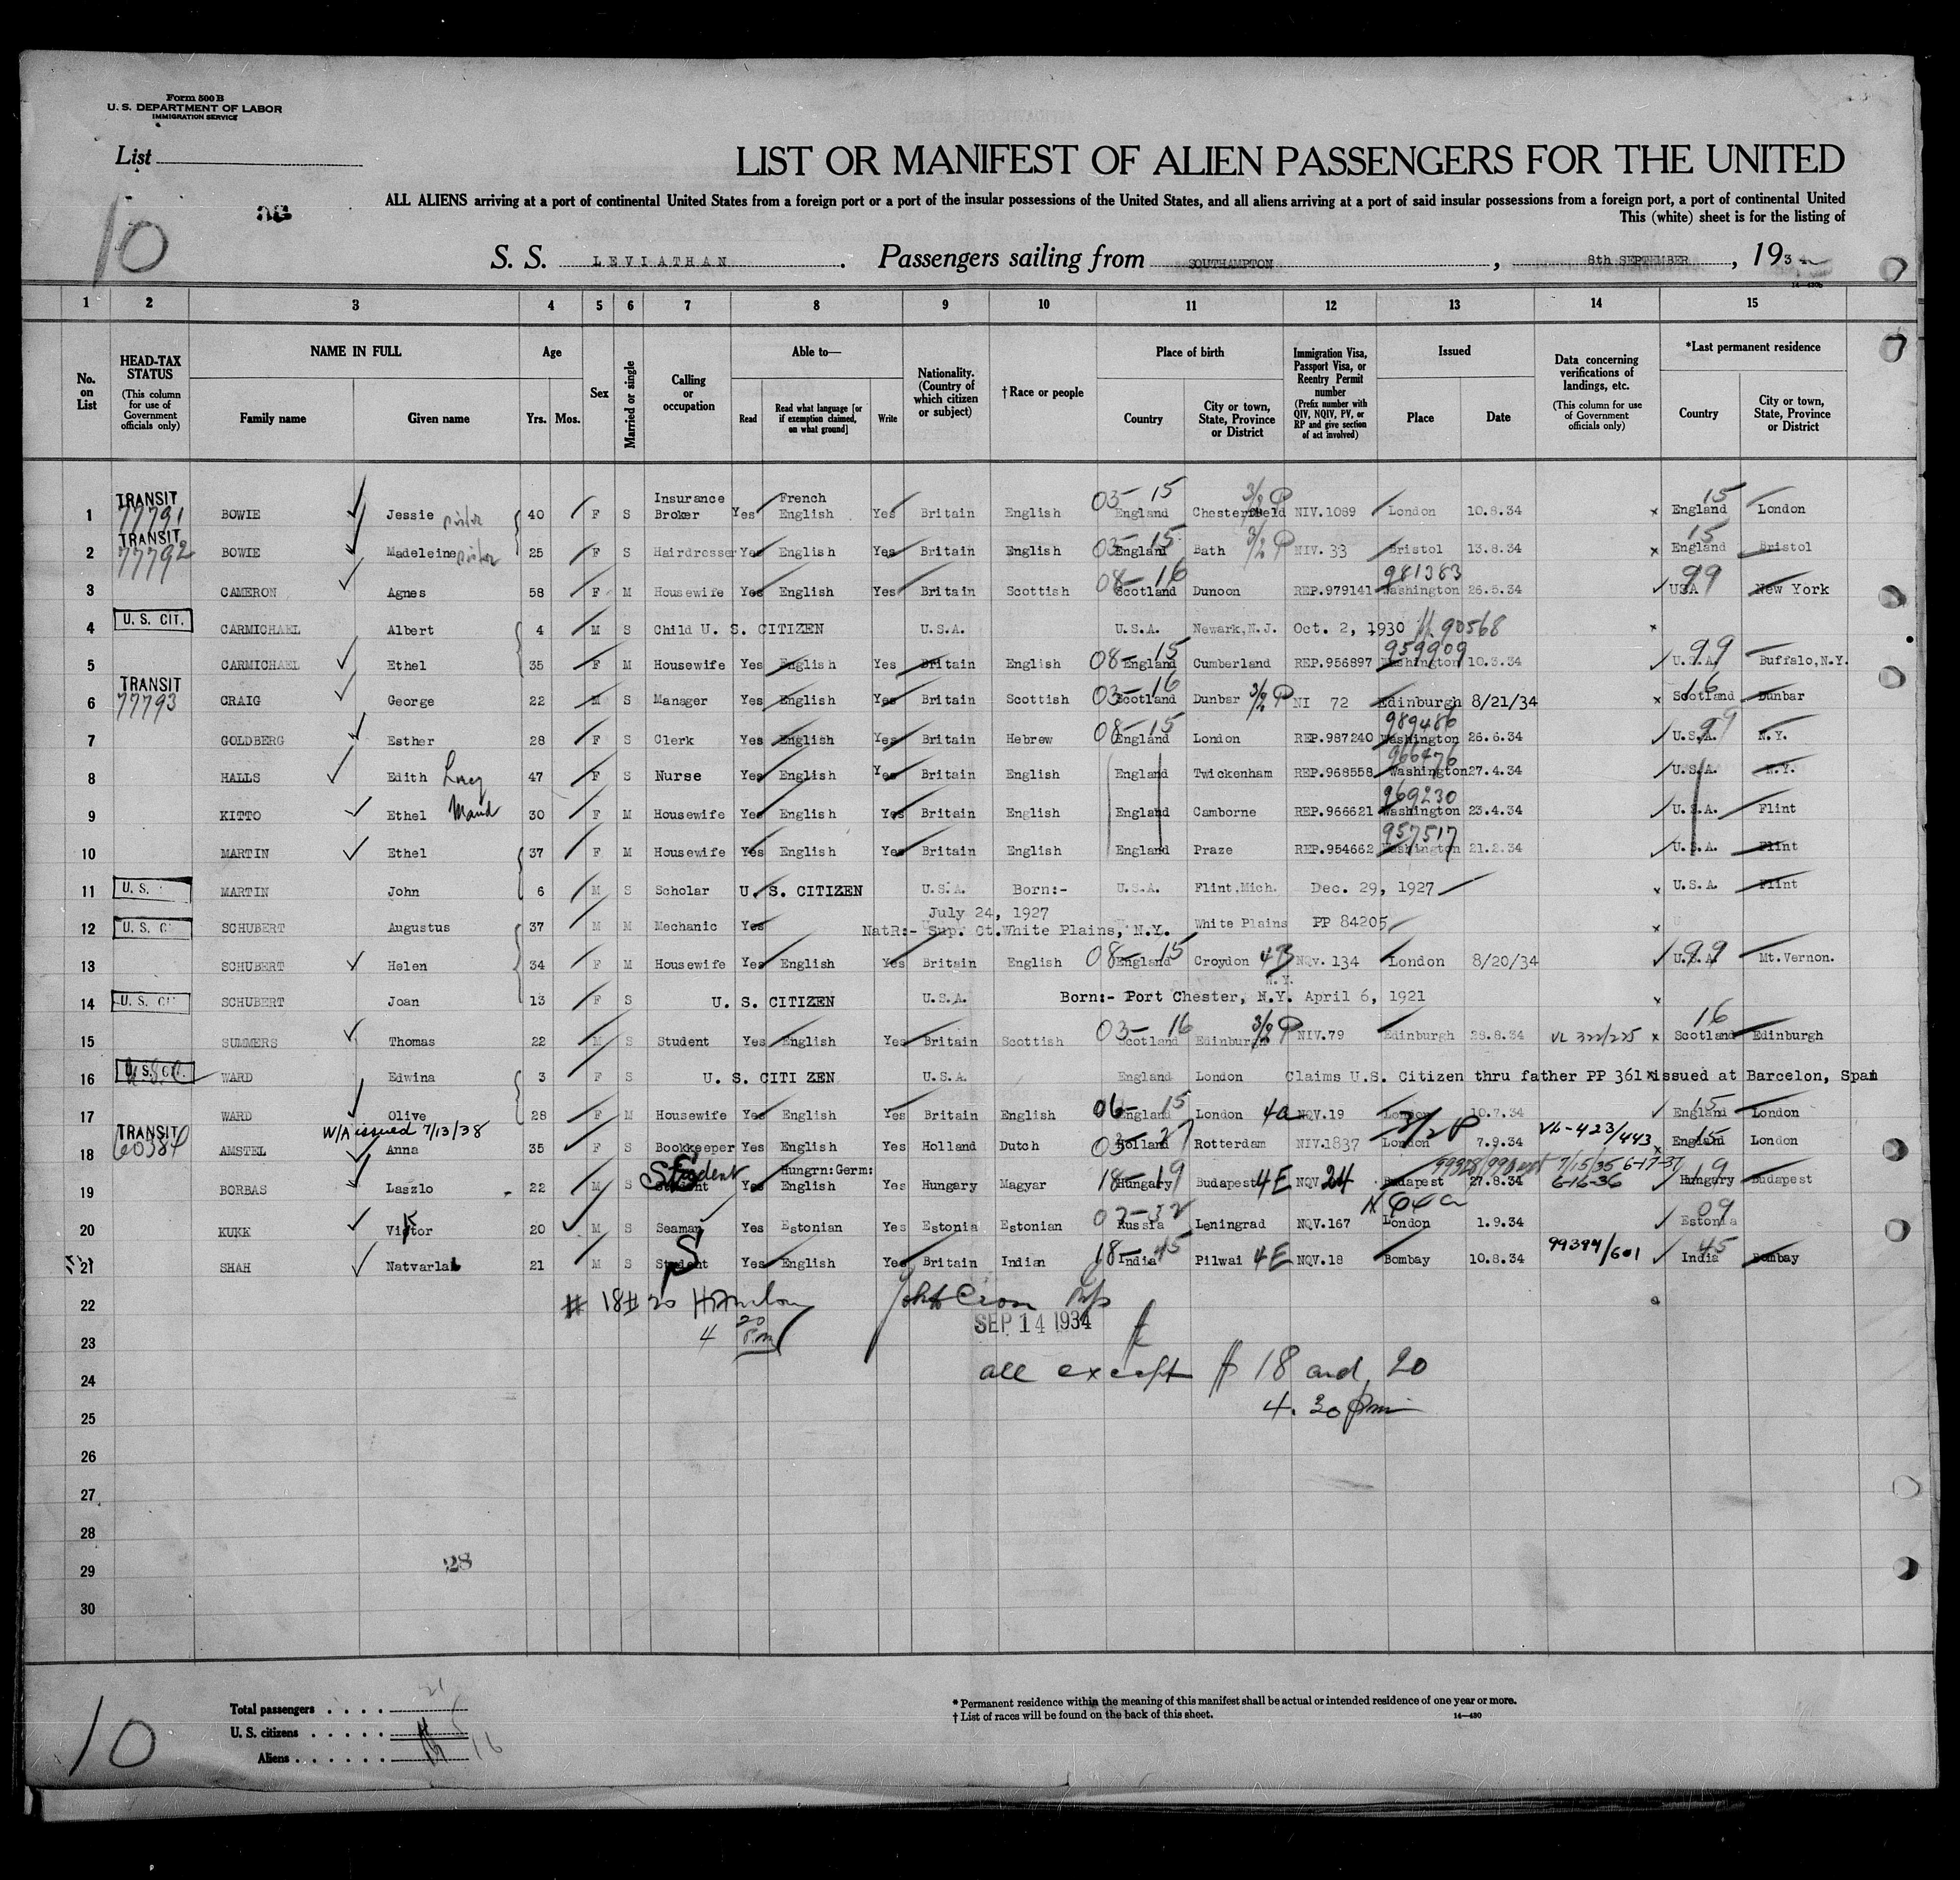 Form 500 B
U. S. DEPARTMENT OF LABOR
IMMIGRATION SERVICE
List
LIST OR MANIFEST OF ALIEN PASSENGERS FOR THE UNITED
ALL ALIENS arriving at a port of continental United States from a foreign port or a port of the insular possessions of the United States, and all aliens arriving at a port of said insular possessions from a foreign port, a port of continental United
This (white) sheet is for the listing of
10
S. S. LEVIATHAN. Passengers sailing from SOUTHAMPTON, 8th SEPTEMBER, 193
1 2 3 4 5 6 7 8 9 10 11 12 13 14 15
No. on List
HEAD-TAX STATUS (This column for use of Government officials only)
NAME IN FULL Family name Given name
Age Yrs. Mos.
Sex
Married or single
Calling or occupation
Able to— Read Read what language [or if exemption claimed, on what ground] Write
Nationality. (Country of which citizen or subject)
†Race or people
Place of birth Country City or town, State, Province or District
Immigration Visa, Passport Visa, or Reentry Permit number (Prefix number with QIV, NQIV, PV, or RP and give section of act involved)
Issued Place Date
Data concerning verifications of landings, etc. (This column for use of Government officials only)
*Last permanent residence Country City or town, State, Province or District
1 TRANSIT 77791 BOWIE Jessie 40 F S Insurance Broker Yes French English Yes Britain English 03-15 England Chesterfield 3/2 P NIV.1089 London 10.8.34 x 15 England London
2 TRANSIT 77792 BOWIE Madeleine 25 F S Hairdresser Yes English Yes Britain English 03-15 England Bath 3/2 P NIV. 33 Bristol 13.8.34 x 15 England Bristol
3 CAMERON Agnes 58 F M Housewife Yes English Yes Britain Scottish 08-16 Scotland Dunoon REP.979141 981383 Washington 26.5.34 USA 99 New York
4 U. S. CIT. CARMICHAEL Albert 4 M S Child U. S. CITIZEN U.S.A. U.S.A. Newark, N.J. Oct. 2, 1930 90568 x
5 CARMICHAEL Ethel 35 F M Housewife Yes English Yes Britain English 08-15 England Cumberland REP.956897 959909 Washington 10.3.34 U.S.A. 99 Buffalo, N.Y.
6 TRANSIT 77793 CRAIG George 22 M S Manager Yes English Yes Britain Scottish 03-16 Scotland Dunbar 3/2 P NI 72 Edinburgh 8/21/34 x 16 Scotland Dunbar
7 GOLDBERG Esther 28 F S Clerk Yes English Yes Britain Hebrew 08-15 England London REP.987240 989486 Washington 26.6.34 U.S.A. 99 N.Y.
8 HALLS Edith Lucy 47 F S Nurse Yes English Yes Britain English England Twickenham REP.968558 966476 Washington 27.4.34 U.S.A. N.Y.
9 KITTO Ethel Maud 30 F M Housewife Yes English Yes Britain English England Camborne REP.966621 969230 Washington 23.4.34 U.S.A. Flint
10 MARTIN Ethel 37 F M Housewife Yes English Yes Britain English England Praze REP.954662 957517 Washington 21.2.34 U.S.A. Flint
11 U. S. MARTIN John 6 M S Scholar U. S. CITIZEN U.S.A. Born:- U.S.A. Flint, Mich. Dec. 29, 1927 x U.S.A. Flint
12 U. S. C SCHUBERT Augustus 37 M M Mechanic Yes July 24, 1927 NatR:- Sup. Ct. White Plains, N.Y. White Plains PP 84205 x
13 SCHUBERT Helen 34 F M Housewife Yes English Yes Britain English 08-15 England Croydon 4B NQv. 134 London 8/20/34 U.S.A. 99 Mt. Vernon.
14 U. S. CI SCHUBERT Joan 13 F S U. S. CITIZEN U.S.A. Born:- Port Chester, N.Y. April 6, 1921 N.Y. x
15 SUMMERS Thomas 22 M S Student Yes English Yes Britain Scottish 03-16 Scotland Edinburgh 3/2 P NIV.79 Edinburgh 28.8.34 VL 322/225 x 16 Scotland Edinburgh
16 U.S. CIT. WARD Edwina 3 F S U. S. CITI ZEN U.S.A. England London Claims U.S. Citizen thru father PP 361 x issued at Barcelon, Spain
17 WARD Olive 28 F M Housewife Yes English Yes Britain English 06-15 England London 4a NQV.19 London 10.7.34 15 England London
W/A issued 7/13/38
18 TRANSIT 60384 AMSTEL Anna 35 F S Bookkeeper Yes English Yes Holland Dutch 03-27 Holland Rotterdam NIV.1837 3/2 P London 7.9.34 VL-423/443 x 15 England London
19 BORBAS Laszlo 22 M S Student Student Yes Hungrn: Germ: English Yes Hungary Magyar 18-19 Hungary Budapest 4E NQV 24 Budapest 27.8.34 7/15/35 6-17-37 6-16-36 19 Hungary Budapest
20 KUKK Viktor 20 M S Seaman Yes Estonian Yes Estonia Estonian 02-32 Russia Leningrad NQV.167 London 1.9.34 09 Estonia
21 SHAH Natvarlal 21 M S Student S Yes English Yes Britain Indian 18-45 India Pilwai 4E NQV.18 Bombay 10.8.34 99394/601 45 India Bombay
22 # 18 # 20
23 4 20 P.m SEP 14 1934
24 all except # 18 and 20
25 4.30 pm
26
27
28
29 28
30
10
Total passengers 21
U. S. citizens 5
Aliens 16
* Permanent residence within the meaning of this manifest shall be actual or intended residence of one year or more.
† List of races will be found on the back of this sheet. 14—430